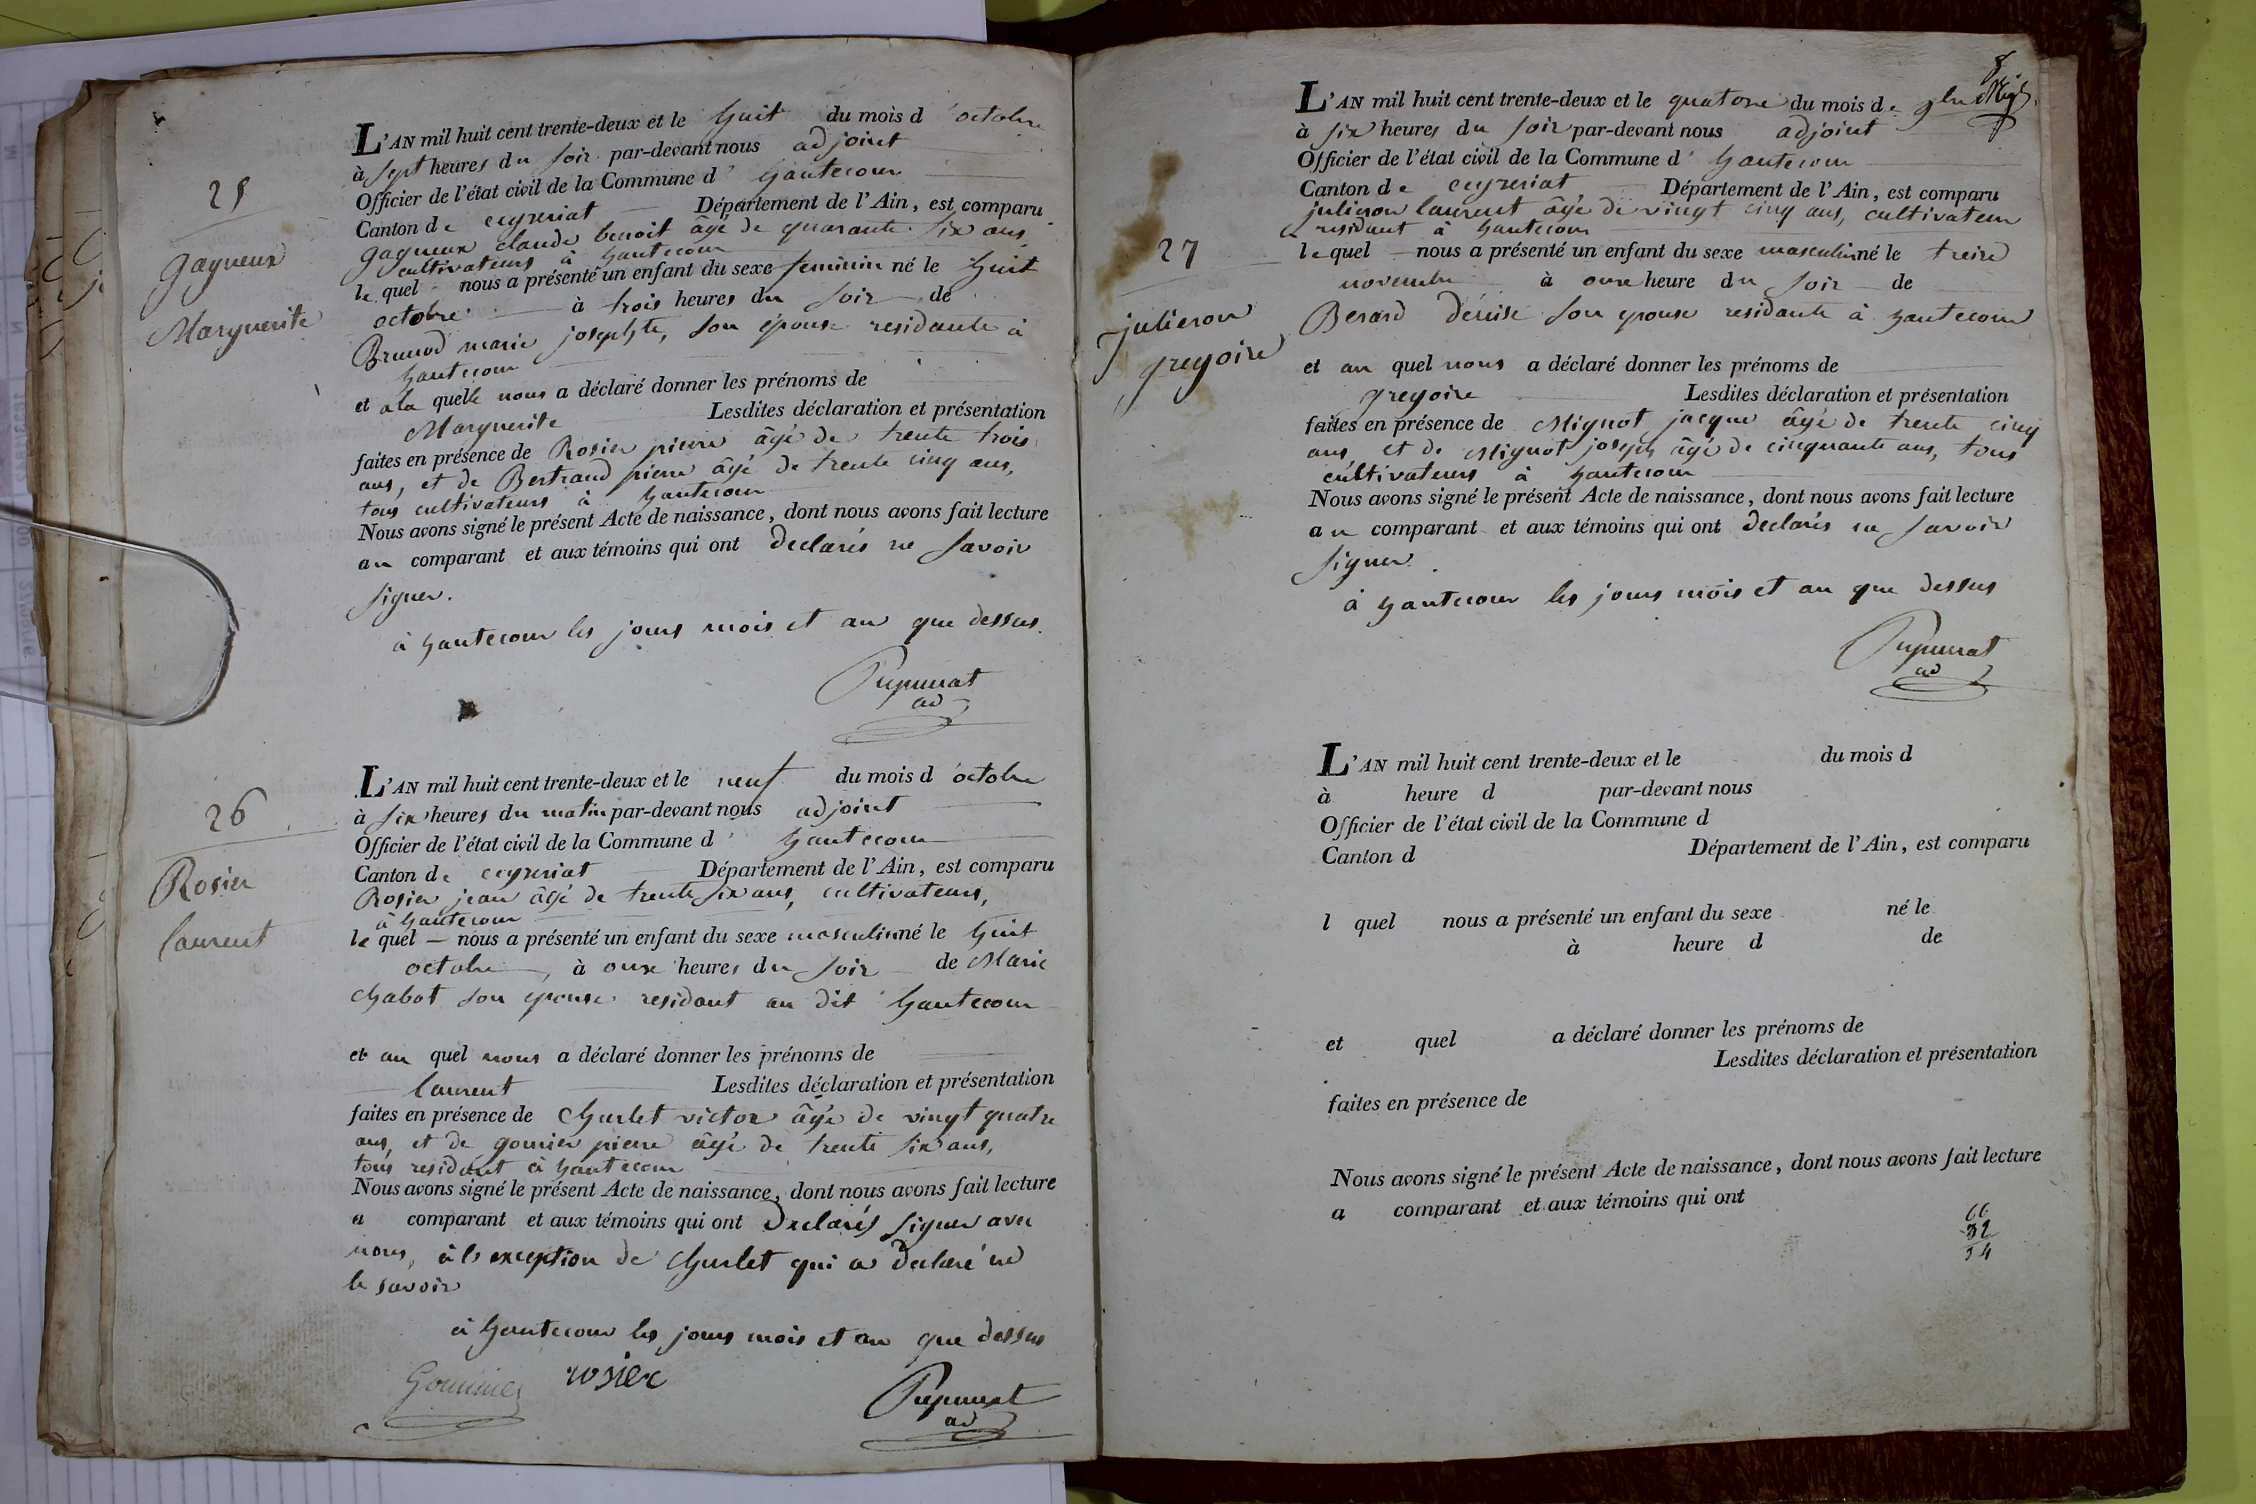 25
Gagneux
Marguerite
L'AN mil huit cent trente-deux et le huit du mois d'octobre
à sept heures du soir par-devant nous adjoint
Officier de l'état civil de la Commune d'hautecour
Canton de ceyzeriat Département de l'Ain, est comparu
gagneux claude benoit âgé de quarante six ans,
cultivateurs à hautecour
lequel nous a présenté un enfant du sexe feminin né le huit
octobre à trois heures du soir de
Brunod marie josephte, son épouse residante à
hautecour
et ala quelle nous a déclaré donner les prénoms de
Marguerite Lesdites déclaration et présentation
faites en présence de Rosier pierre âgé de trente trois
ans, et de Bertrand pierre âgé de trente cinq ans,
tous cultivateurs à hautecour
Nous avons signé le présent Acte de naissance, dont nous avons fait lecture
au comparant et aux témoins qui ont declarés ne savoir
signer.
à hautecour les jours mois et an que dessus.
ad
26
Rosier
laurent
L'AN mil huit cent trente-deux et le neuf du mois d'octobre
à six heures du matin par-devant nous adjoint
Officier de l'état civil de la Commune d'hautecour
Canton de ceyzeriat Département de l'Ain, est comparu
Rosier jean âgé de trente six ans, cultivateurs,
à hautecour
lequel nous a présenté un enfant du sexe masculin né le huit
octobre, à onze heures du soir de Marie
Chabot son epouse residant au dit hautecour
et au quel nous a déclaré donner les prénoms de
laurent Lesdites déclaration et présentation
faites en présence de Churlet victor âgé de vingt quatre
ans, et de gounier pierre âgé de trente six ans,
tous residant à hautecour
Nous avons signé le présent Acte de naissance, dont nous avons fait lecture
a comparant et aux témoins qui ont declarés signer avec
nous, à la exception de Churlet qui a declaré ne
le savoir
à hautecour les jours mois et an que dessus
rosier
ad
8
27
julieron
gregoire
L'AN mil huit cent trente-deux et le quatorze du mois de 9bre
à six heures du soir par-devant nous adjoint
Officier de l'état civil de la Commune d'hautecour
Canton de ceyzeriat Département de l'Ain, est comparu
julieron laurent âgé de vingt cinq ans, cultivateur
residant à hautecour
lequel nous a présenté un enfant du sexe masculin né le treize
novembre à onze heure du soir de
Berard dénise son epouse residante à hautecour
et au quel nous a déclaré donner les prénoms de
gregoire Lesdites déclaration et présentation
faites en présence de Mignot jacque âgé de trente cinq
ans, et de Mignot joseph âgé de cinquante ans, tous
cultivateurs à hautecour
Nous avons signé le présent Acte de naissance, dont nous avons fait lecture
au comparant et aux témoins qui ont declarés ne savoir
signer.
à hautecour les jours mois et an que dessus
ad
L'AN mil huit cent trente-deux et le du mois d
à heure d par-devant nous
Officier de l'état civil de la Commune d
Canton d Département de l'Ain, est comparu
l quel nous a présenté un enfant du sexe né le
à heure d de
et quel a déclaré donner les prénoms de
Lesdites déclaration et présentation
faites en présence de
Nous avons signé le présent Acte de naissance, dont nous avons fait lecture
a comparant et aux témoins qui ont
66
32
34